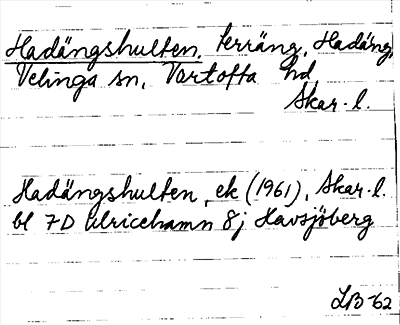 Hadängshulten, terräng, Hadäng,
Velinga sn, Vartofta hd
Skar. l.
Hadängshulten, ek (1961), Skar. l.
bl 7D Ulricehamn 8j Havsjöberg
LB-62